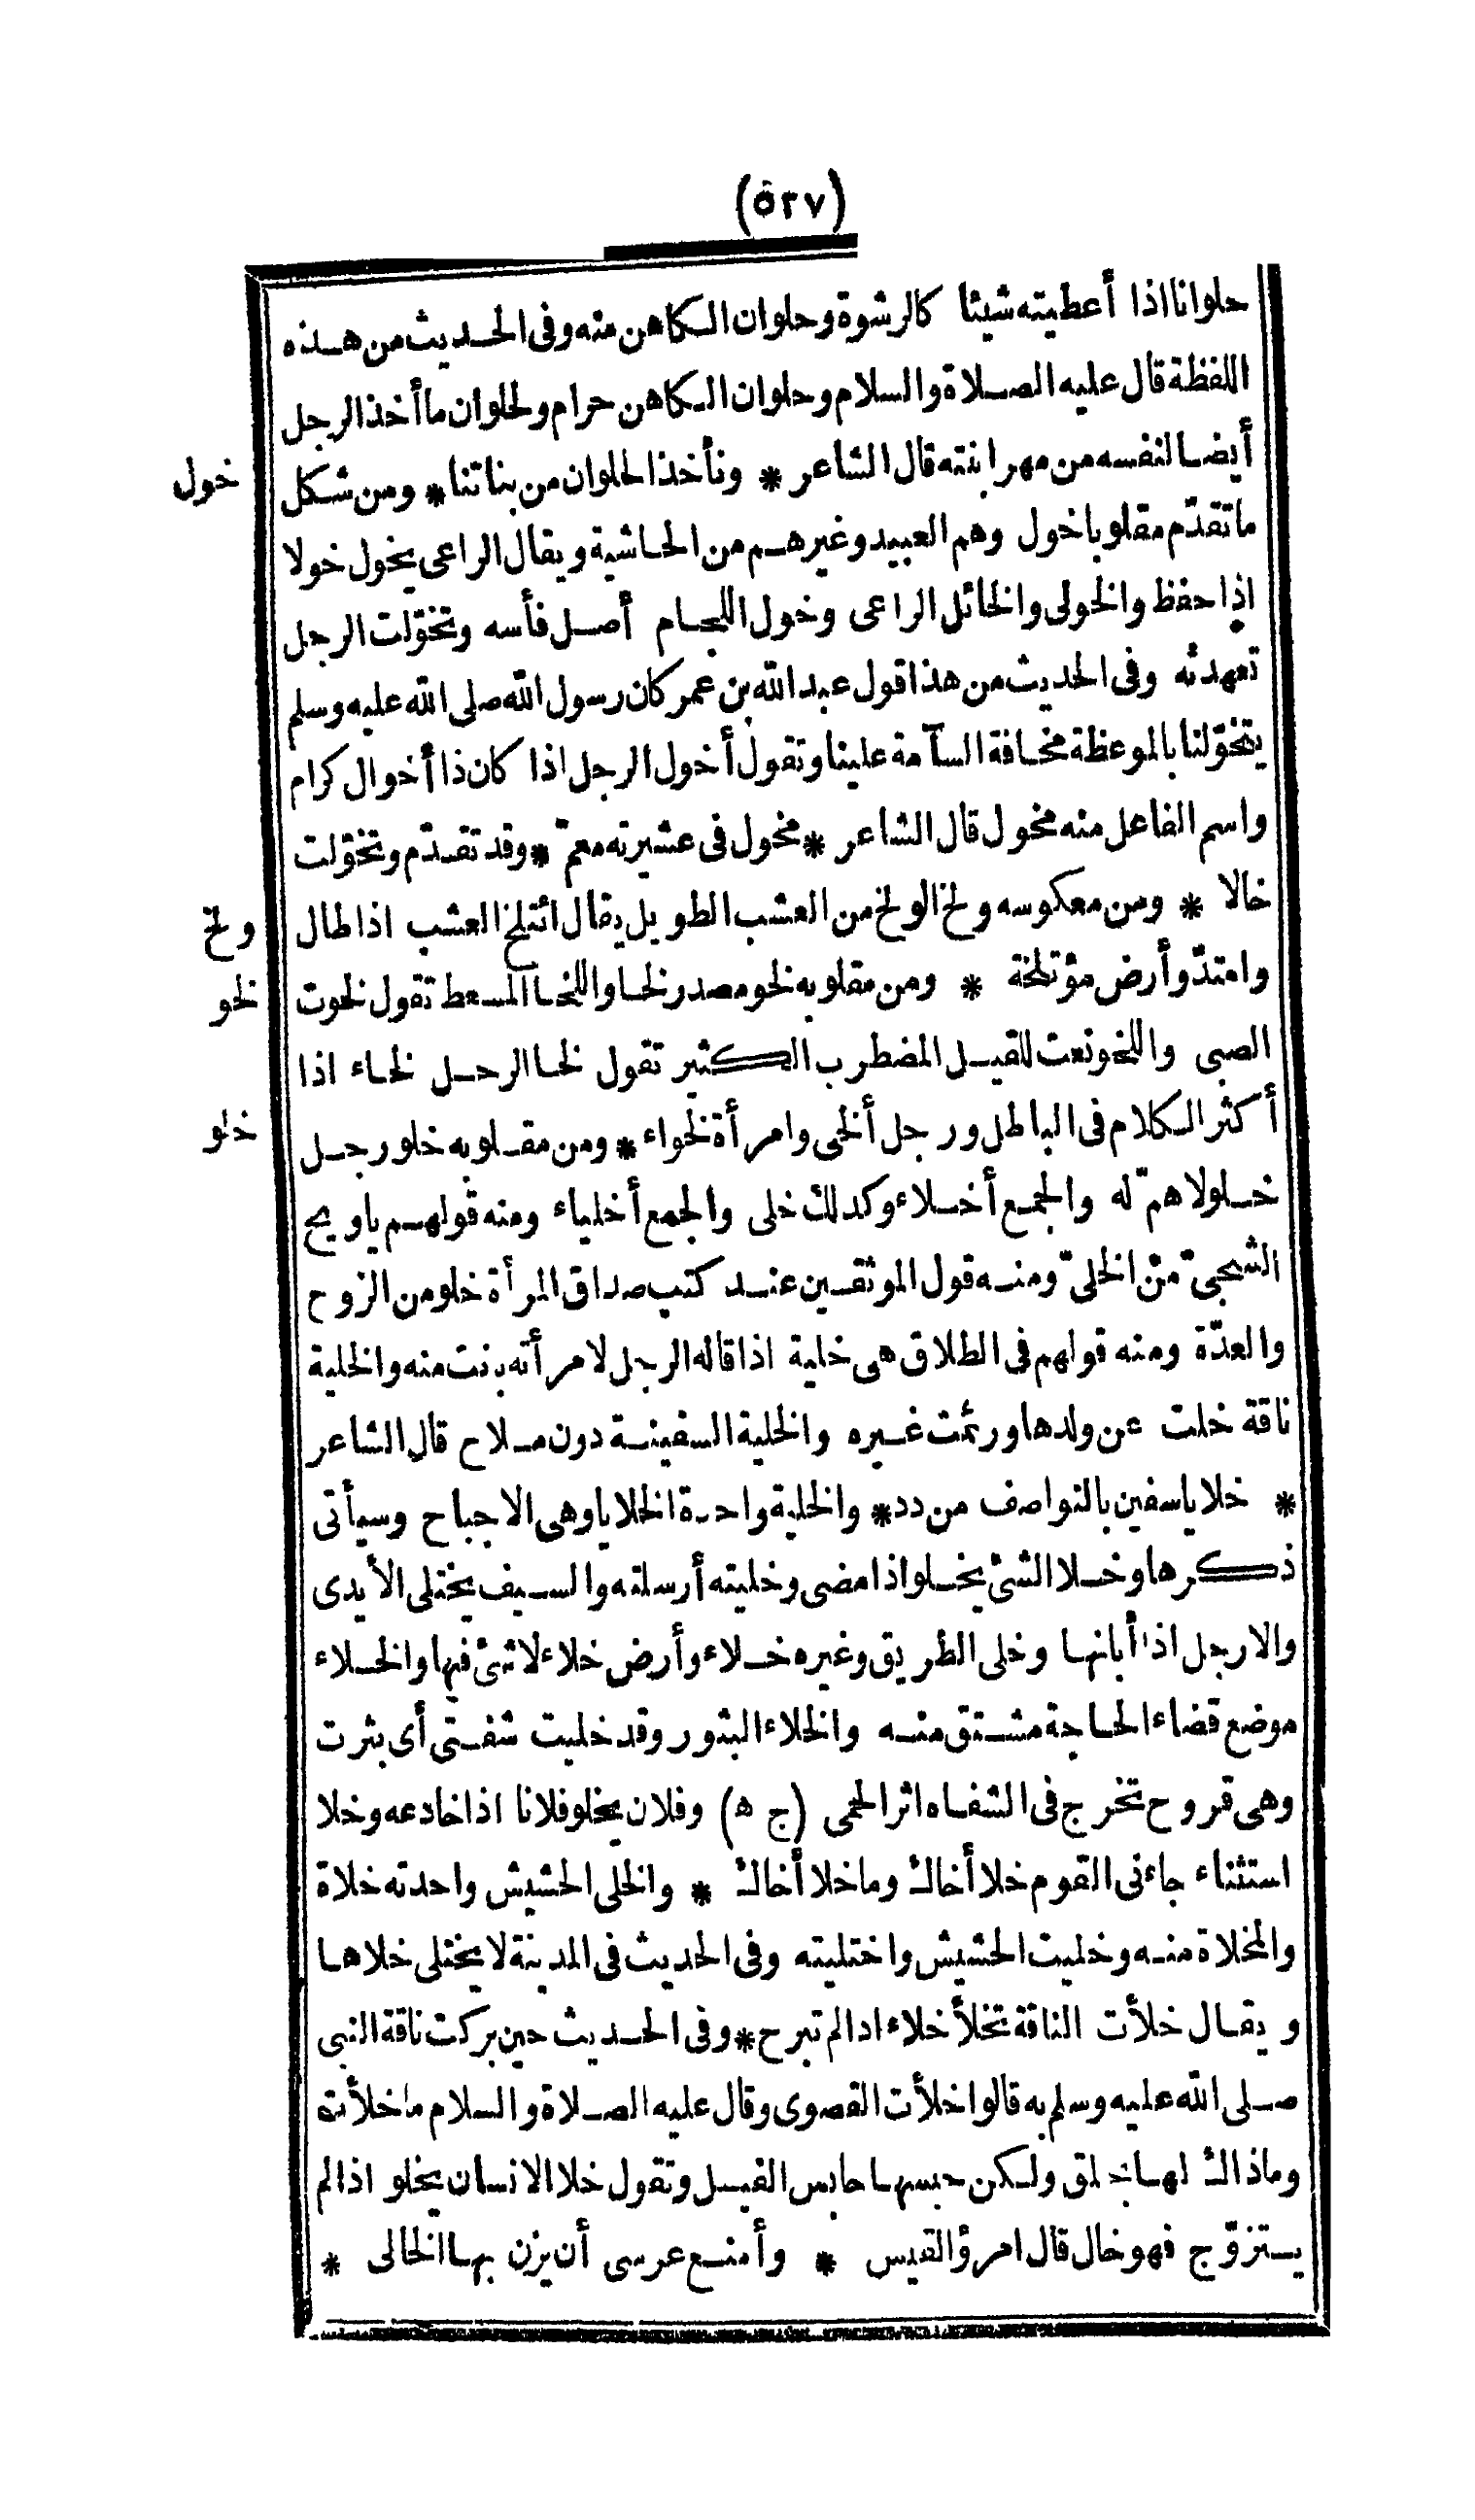 (٥٢٧)
حلوانا اذا أعطيته شيئا كالرشوة وحلوان الكاهن منه وفى الحديث من هذه
اللفظة قال عليه الصلاة والسلام وحلوان الكاهن حرام ولحلوان ما أخذ الرجل
أيضا لنفسه من مهر ابنته قال الشاعر * ونأخذ الحلوان من بناتنا * ومن شكل
خول
ما تقدّم مقلوبا خول وهم العبيد وغيرهم من الحاشية ويقال الراعى يخول خولا
اذا حفظ والخولى والخائل الراعى وخول اللجام أصل فأسه وتخوّلت الرجل
تعهدته وفى الحديث من هذا قول عبد الله بن عمر كان رسول الله صلى الله عليه وسلم
يتخوّلنا بالموعظة مخافة السآمة علينا وتقول أخول الرجل اذا كان ذا أخوال كرام
واسم الفاعل منه مخول قال الشاعر * مخول فى عشيرته معمّ * وقد تقدّم وتخوّلت
خالا * ومن معكوسه ولخ الولخ من العشب الطويل يقال ائتلخ العشب اذا طال
ولخ
وامتدّ وأرض مؤتلخة * ومن مقلوبه لخو مصدر لخا واللخا المسعط تقول لخوت
لخو
الصبى واللخو نعت للقيل المضطرب الكثير تقول لخا الرجل لخاء اذا
أكثر الكلام فى الباطل ورجل ألخى وامرأة لخواء * ومن مقلوبه خلو رجل
خلو
خلو لا همّ له والجمع أخلاء وكذلك خلى والجمع أخلياء ومنه قولهم ياويح
الشجىّ منْ الخلىّ ومنه قول الموثقين عند كتب صداق المرأة خلو من الزوج
والعدّة ومنه قولهم فى الطلاق هى خلية اذا قاله الرجل لامرأته بنت منه والخلية
ناقة خلت عن ولدها ورئمت غيره والخلية السفينة دون ملاح قال الشاعر
* خلايا سفين بالنواصف من دد * والخلية واحدة الخلايا وهى الاجباح وسيأتى
ذكرها وخلا الشئ يخلو اذا مضى وخليته أرسلته والسيف يختلى الأيدى
والارجل اذا أبانها وخلى الطريق وغيره خلاء وأرض خلاء لا شئ فيها والخلاء
موضع قضاء الحاجة مشتق منه والخلاء البثور وقد خليت شفتى أى بثرت
وهى قروح تخرج فى الشفاه اثر الحمى (ج ه) وفلان يخلو فلانا اذا خادعه وخلا
استثناء جاءنى القوم خلا أخاك وما خلا أخاك * والخلى الحشيش واحدته خلاة
والمخلاة منه وخليت الحشيش واختليته وفى الحديث فى المدينة لا يختلى خلاها
ويقال خلأت الناقة تخلأ خلاء اذا لم تبرح * وفى الحديث حين بركت ناقة النبى
صلى الله عليه وسلم به قالوا خلأت القصوى وقال عليه الصلاة والسلام ما خلأته
وماذاك لها بخلق ولكن حبسها حابس الفيل وتقول خلا الانسان يخلو اذا لم
يستزوّج فهو خال قال امرؤ القيس * وأمنع عرسى أن يزن بها الخالى *